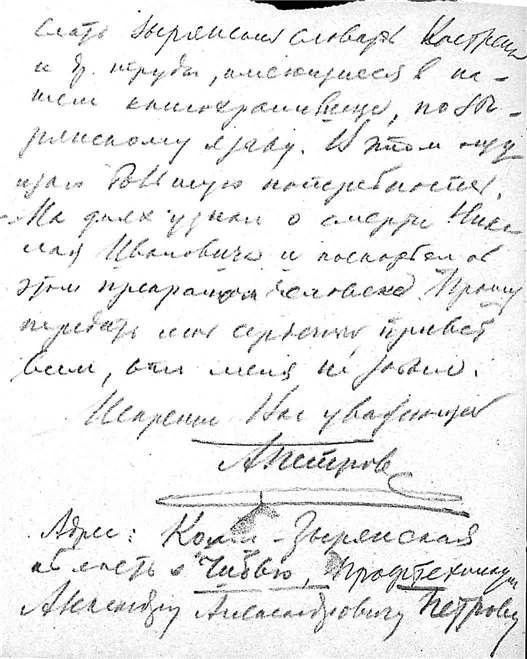 слать зырянский словарь Кастрена
и др. труды, имеющиеся в на-
шем книгохранилище, по зы-
рянскому языку. В этом ощу
щаю большую потребность.
На днях узнал о смерти Нико
лая Ивановича и поскорбел об
этом прекрасном человеке. Прошу
передать мой сердечный привет
всем, кто меня не забыл.
Искренне Вас уважающий
АПетров
Адрес: Коми-Зырянская
область с Чибью, Профтехникум
Александру Александровичу Петрову